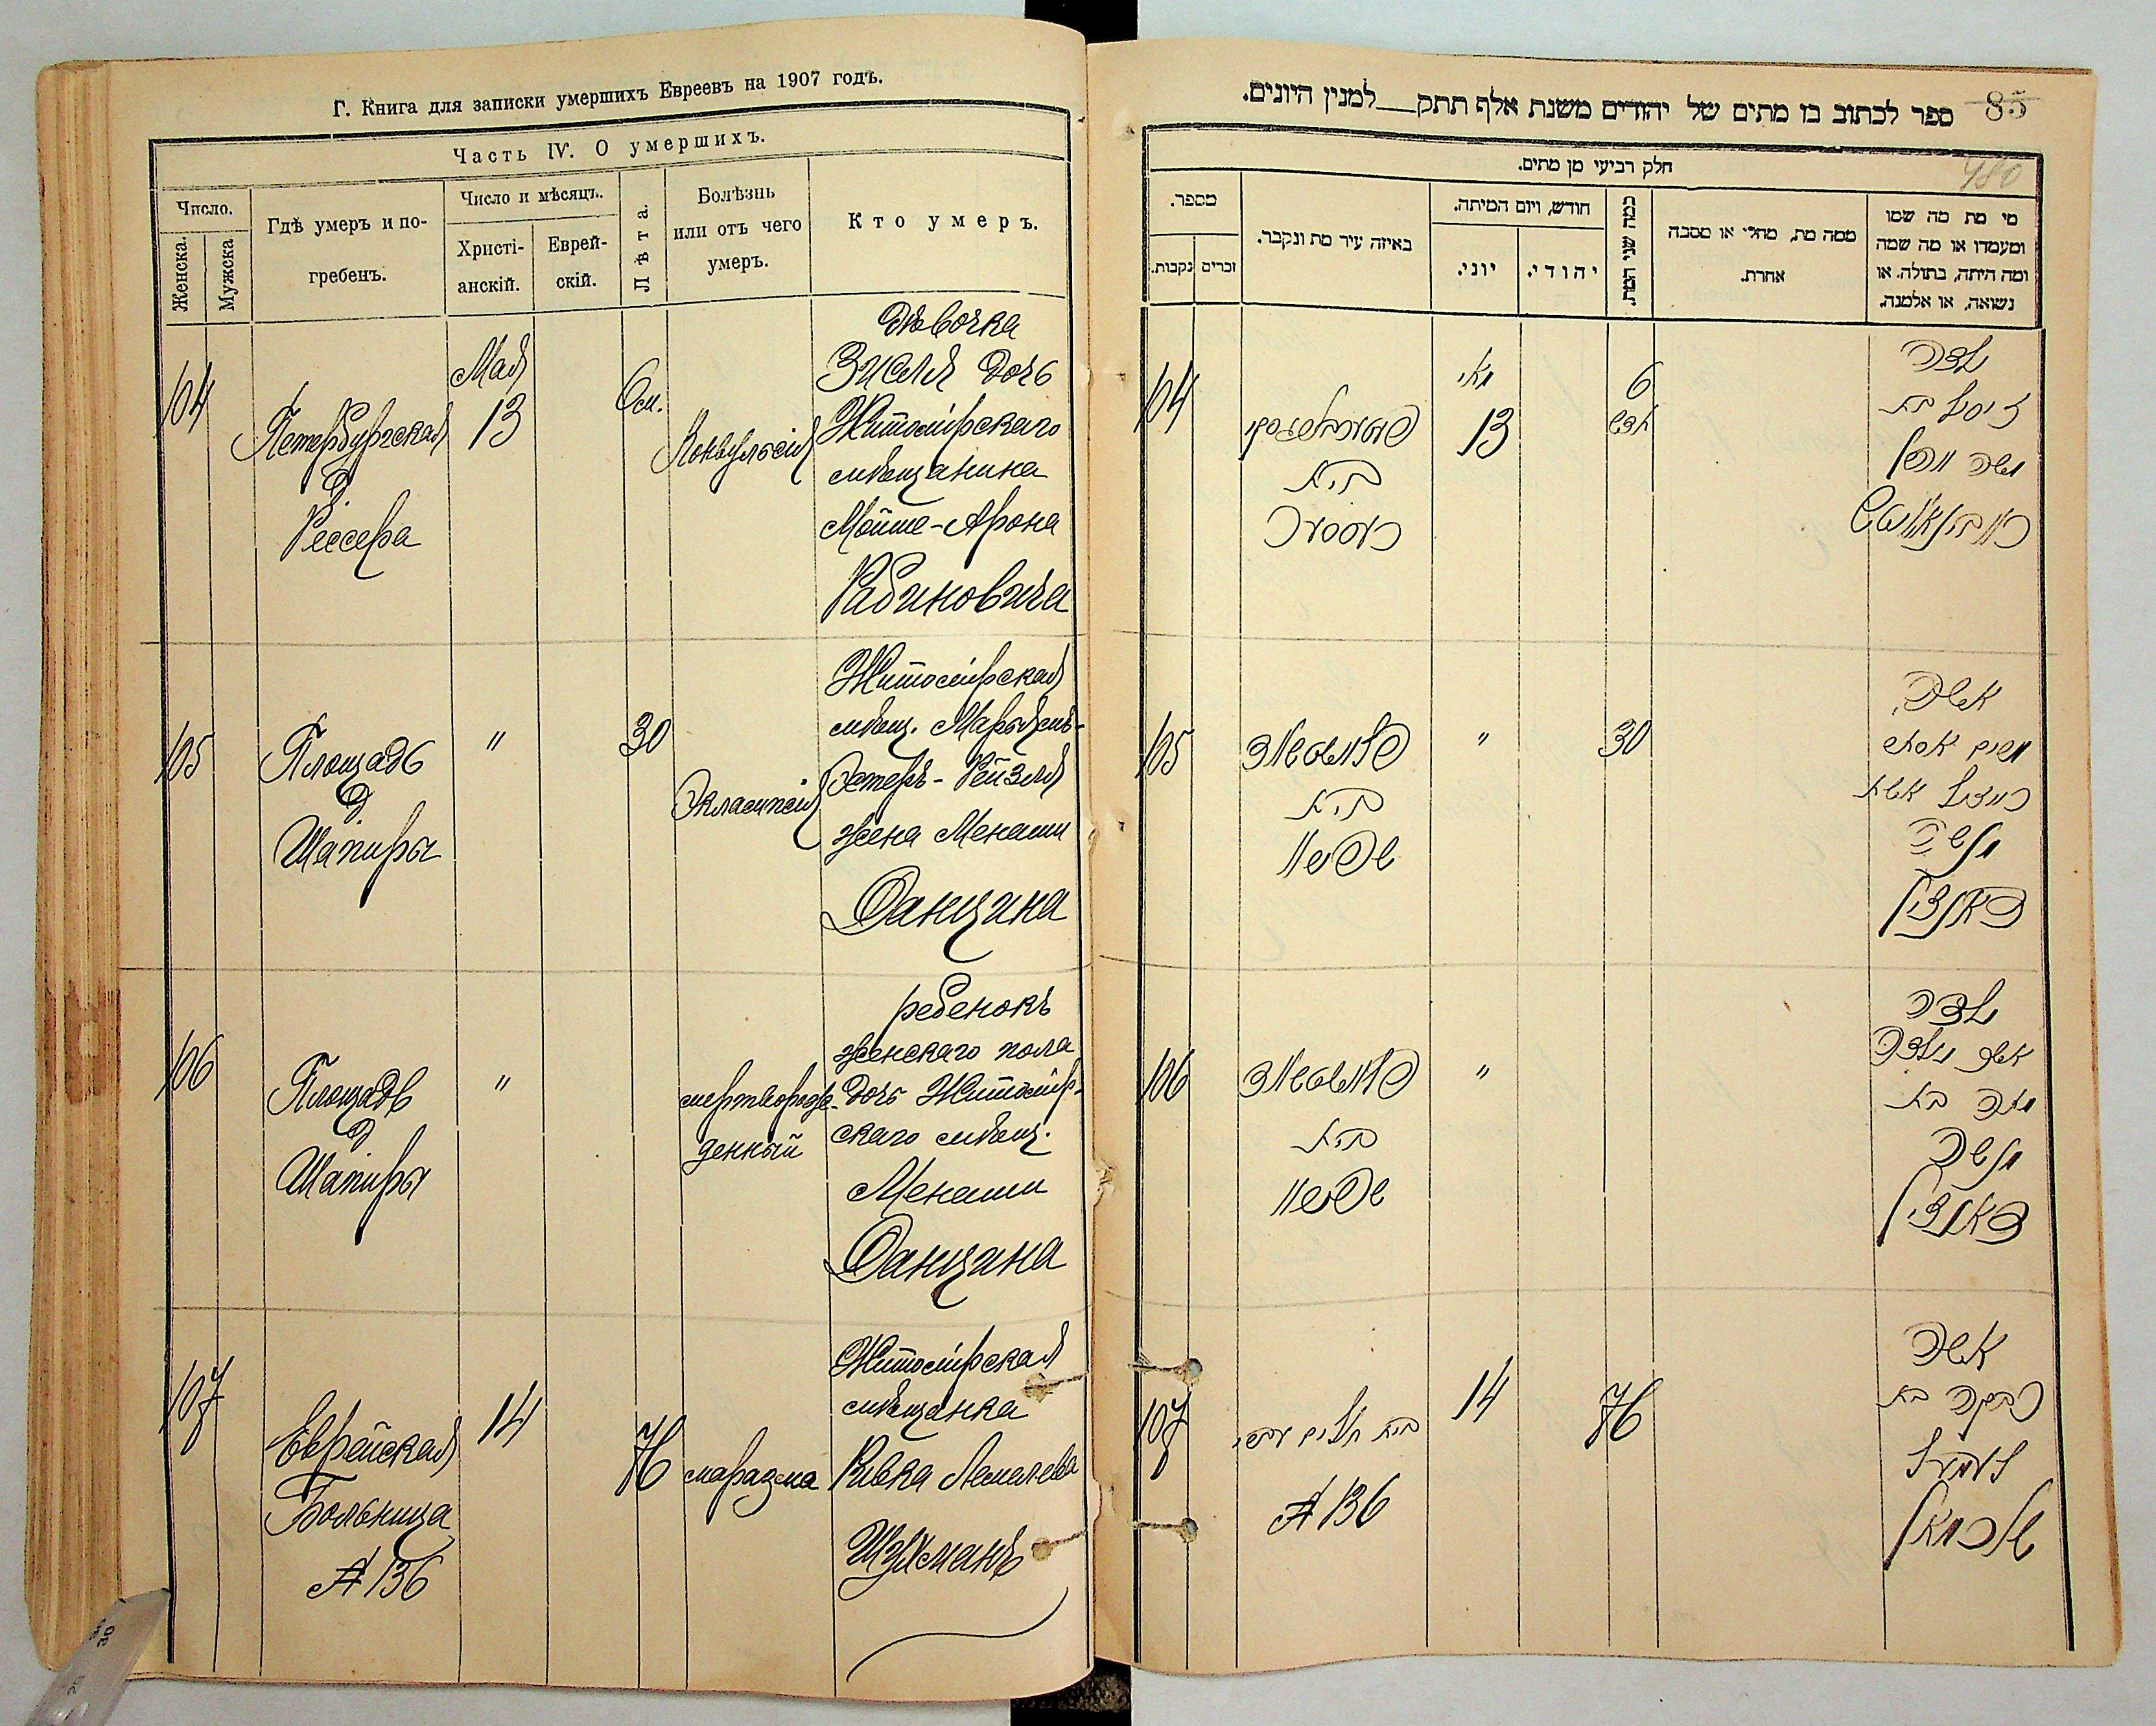 Г. Книга для записки умершихъ Евреевъ на 1907 годъ.
Часть IV. О умершихъ.
Число.
Женска.
Мужска
Гдѣ умеръ и по-
гребенъ.
Число и мѣсяцъ.
Христі-
анскій.
Еврей-
скій.
Лѣта.
Болѣзнь
или отъ чего
умеръ.
Кто умеръ.
104
Петербургская
д.
Рессера
Мая
13
6 м.
Конвульсія
Дѣвочка
Зисля дочь
Житомірскаго
мѣщанина
Мойше-Арона
Рабиновича
105
Площадь
д.
Шапиры
"
30
Эклампсія
Житомірская
мѣщ. Марьямъ-
Эстеръ-Рейзля
жена Менаши
Данцина
106
Площадь
д
Шапиры
"
мертворож-
денный
ребенокъ
женскаго пола
дочь Житомір-
скаго мѣщ.
Менаши
Данцина
107
Еврейская
Больница
А 136
14
76
маразма
Житомірская
мѣщанка
Ривка Лемелева
Шухманъ
85
ספר לכתוב בו מתים של יהודים משנת אלף תתק למנין היונים.
480
חלק רביעי מן מתים.
מספר.
נקבות.
זכרים
באיזה עיר מת ונקבר.
חודש, ויום המיתה.
יוני.
יהודי.
כמה שני המת.
ממה מת, מחלי או מסבה
אחרת.
מי מת מה שמו
ומעמדו או מה שמה
ומה היתה, בתולה, או
נשואה, או אלמנה.
104
פעטערבורגסקי
בית
רעססער
מאי
13
6
חדש
ילדה
זיסל בת
משה אהרן
ראבינאוויטש
105
פלאשטאד
בית
שפירא
"
30
אשה
מרים אסתר
רייזיל אשת
מנשה
דאנצין
106
פלאשטאד
בית
שפירא
"
ילדה
אשר נולדה
מתה בת
מנשה
דאנצין
107
בית חולים עברי
A 136
14
76
אשה
רבקה בת
לעמעל
שוכמאן